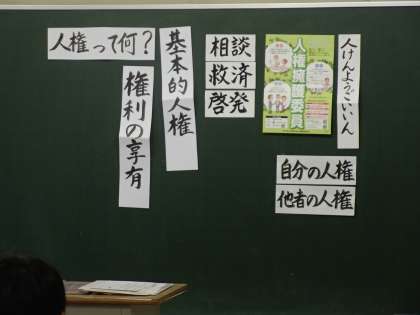 人権って何?
基本的人権
権利の享有
相談
救済
啓発
人権擁護委員
人けんようごいいん
自分の人権
他者の人権